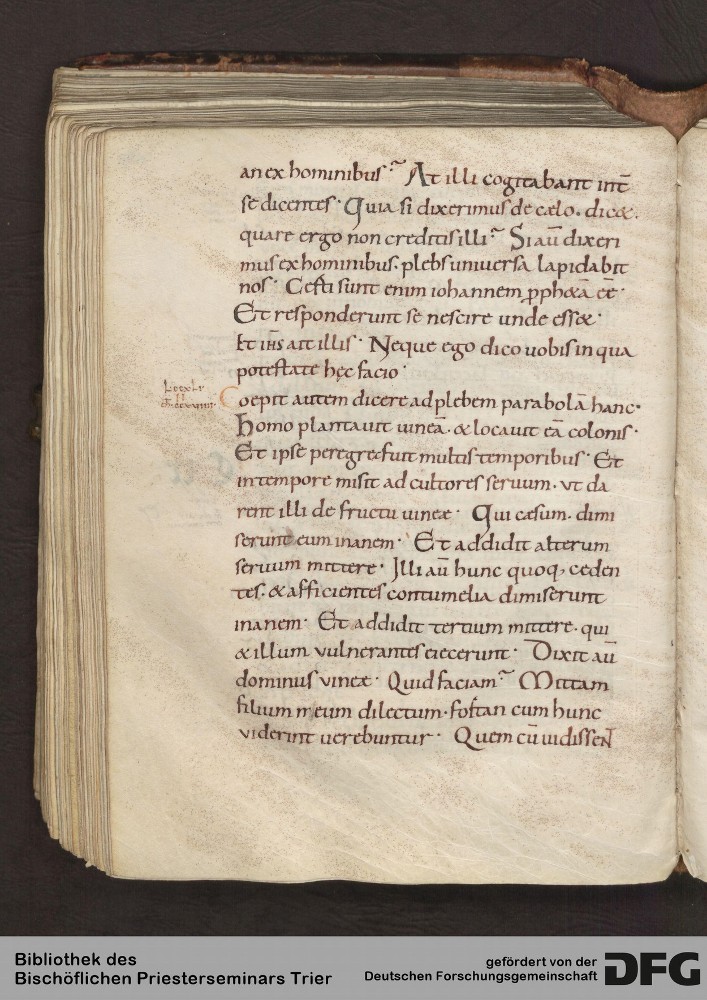 an ex hominibus? At illi cogitabant int̄
se dicentes· Quia si dixerimus de cælo· dic&·
quare ergo non credidistis illi? Si aū dixeri
mus ex hominibus· plebs universa lapidabit
nos· Certi sunt enim iohannem ꝓph&ā eē·
Et responderunt se nescire unde ess&·
Et ih̄s ait illis· Neque ego dico uobis in qua
potestate hęc facio·
Coepit autem dicere ad plebem parabolā hanc·
Homo plantauit uineā· & locauit eā colonis·
Et ipse peregre fuit multis temporibus· Et
in tempore misit ad cultores seruum· vt da
rent illi de fructu uineæ· Qui cæsum· dimi
serunt eum inanem· Et addidit alterum
seruum mittere· Illi aū hunc quoq; ceden
tes· & afficientes contumelia dimiserunt
inanem· Et addidit tertium mittere· qui
& illum vulnerantes eiecerunt· Dixit aū
dominus vineæ· Quid faciam? Mittam
filium meum dilectum· forsitan cum hunc
viderint uerebuntur· Quem cū uidissent
Bibliothek des
Bischöflichen Priesterseminars Trier
gefördert von der
Deutschen Forschungsgemeinschaft
DFG